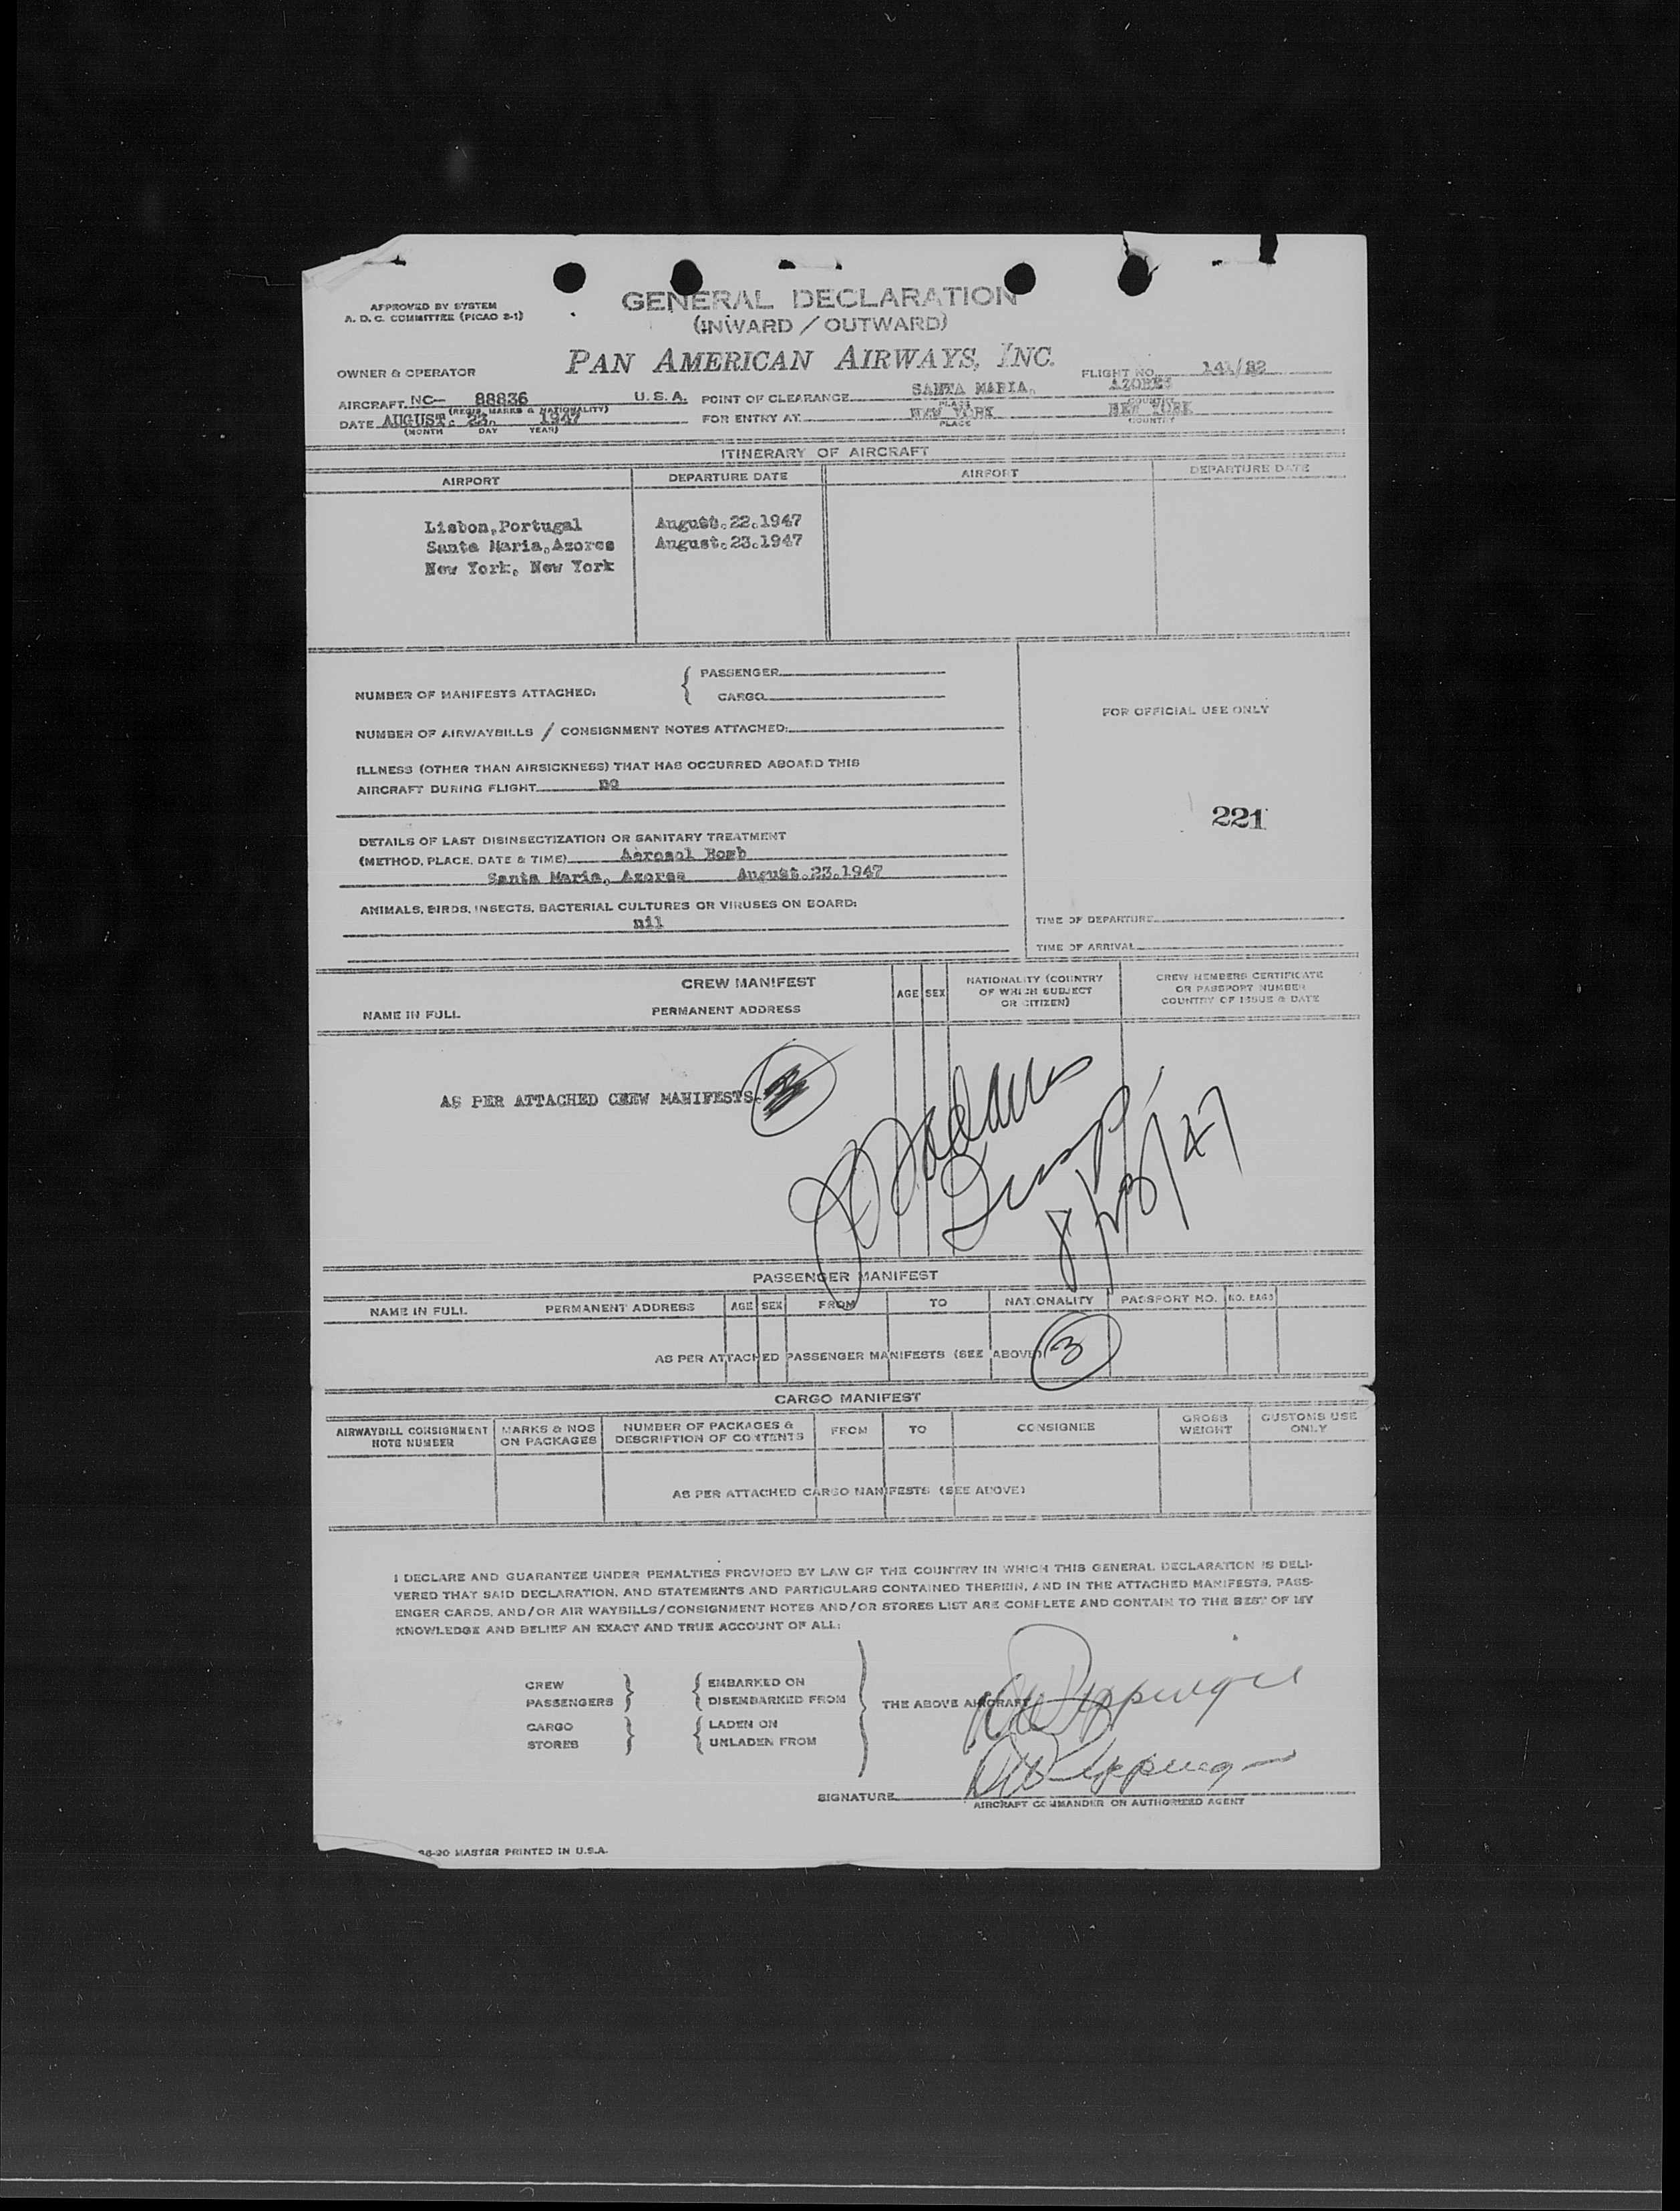 APPROVED BY SYSTEM
A. D. C. COMMITTEE (PICAO 2-1)
GENERAL DECLARATION
(INWARD / OUTWARD)
OWNER & OPERATOR PAN AMERICAN AIRWAYS, INC. FLIGHT NO. 141/82
AIRCRAFT NC- 88836 U.S.A. POINT OF CLEARANCE SANTA MARIA, AZORES
(REGIS. MARKS & NATIONALITY) PLACE COUNTRY
DATE AUGUST. 23. 1947 FOR ENTRY AT NEW YORK NEW YORK
(MONTH DAY YEAR) PLACE COUNTRY
ITINERARY OF AIRCRAFT
AIRPORT DEPARTURE DATE AIRPORT DEPARTURE DATE
Lisbon,Portugal August.22.1947
Santa Maria,Azores August.23.1947
New York, New York
NUMBER OF MANIFESTS ATTACHED: { PASSENGER
CARGO
NUMBER OF AIRWAYBILLS / CONSIGNMENT NOTES ATTACHED:
ILLNESS (OTHER THAN AIRSICKNESS) THAT HAS OCCURRED ABOARD THIS
AIRCRAFT DURING FLIGHT no
DETAILS OF LAST DISINSECTIZATION OR SANITARY TREATMENT
(METHOD, PLACE, DATE & TIME) Aerosol Bomb
Santa Maria, Azores August.23.1947
ANIMALS, BIRDS, INSECTS, BACTERIAL CULTURES OR VIRUSES ON BOARD:
nil
FOR OFFICIAL USE ONLY
221
TIME OF DEPARTURE
TIME OF ARRIVAL
CREW MANIFEST
NAME IN FULL PERMANENT ADDRESS AGE SEX NATIONALITY (COUNTRY OF WHICH SUBJECT OR CITIZEN) CREW MEMBERS CERTIFICATE OR PASSPORT NUMBER COUNTRY OF ISSUE & DATE
AS PER ATTACHED CREW MANIFESTS
8/23/47
PASSENGER MANIFEST
NAME IN FULL PERMANENT ADDRESS AGE SEX FROM TO NATIONALITY PASSPORT NO. NO. BAGS
AS PER ATTACHED PASSENGER MANIFESTS (SEE ABOVE) 3
CARGO MANIFEST
AIRWAYBILL CONSIGNMENT NOTE NUMBER MARKS & NOS ON PACKAGES NUMBER OF PACKAGES & DESCRIPTION OF CONTENTS FROM TO CONSIGNEE GROSS WEIGHT CUSTOMS USE ONLY
AS PER ATTACHED CARGO MANIFESTS (SEE ABOVE)
I DECLARE AND GUARANTEE UNDER PENALTIES PROVIDED BY LAW OF THE COUNTRY IN WHICH THIS GENERAL DECLARATION IS DELI-
VERED THAT SAID DECLARATION, AND STATEMENTS AND PARTICULARS CONTAINED THEREIN, AND IN THE ATTACHED MANIFESTS, PASS-
ENGER CARDS, AND/OR AIR WAYBILLS/CONSIGNMENT NOTES AND/OR STORES LIST ARE COMPLETE AND CONTAIN TO THE BEST OF MY
KNOWLEDGE AND BELIEF AN EXACT AND TRUE ACCOUNT OF ALL:
CREW } { EMBARKED ON
PASSENGERS DISEMBARKED FROM THE ABOVE AIRCRAFT
CARGO } { LADEN ON
STORES UNLADEN FROM
SIGNATURE
AIRCRAFT COMMANDER OR AUTHORIZED AGENT
36-20 MASTER PRINTED IN U.S.A.